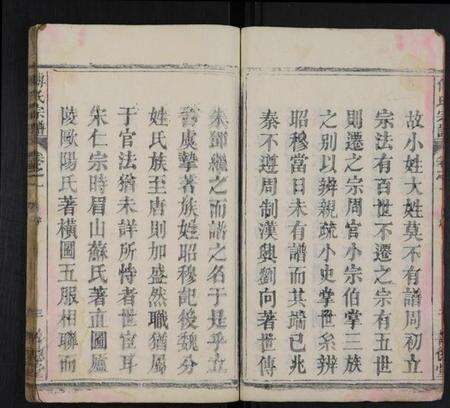 故小姓大姓莫不有譜周初立
宗法有百世不遷之宗有五世
則遷之宗周官小宗伯掌三族
之别以辨親疏小史掌世系辨
昭穆當日未有譜而其端已兆
秦不遵周制漢興劉向著世傳
朱鄧繼之而譜之名于是乎立
晉虞摯著族姓昭穆記後魏分
姓氏族至唐則加盛然職猶屬
于官法猶未詳所恃者世官耳
宋仁宗時眉山蘇氏著直圖廬
陵歐陽氏著橫圖五服相聯而
氏宗譜
卷之一
三